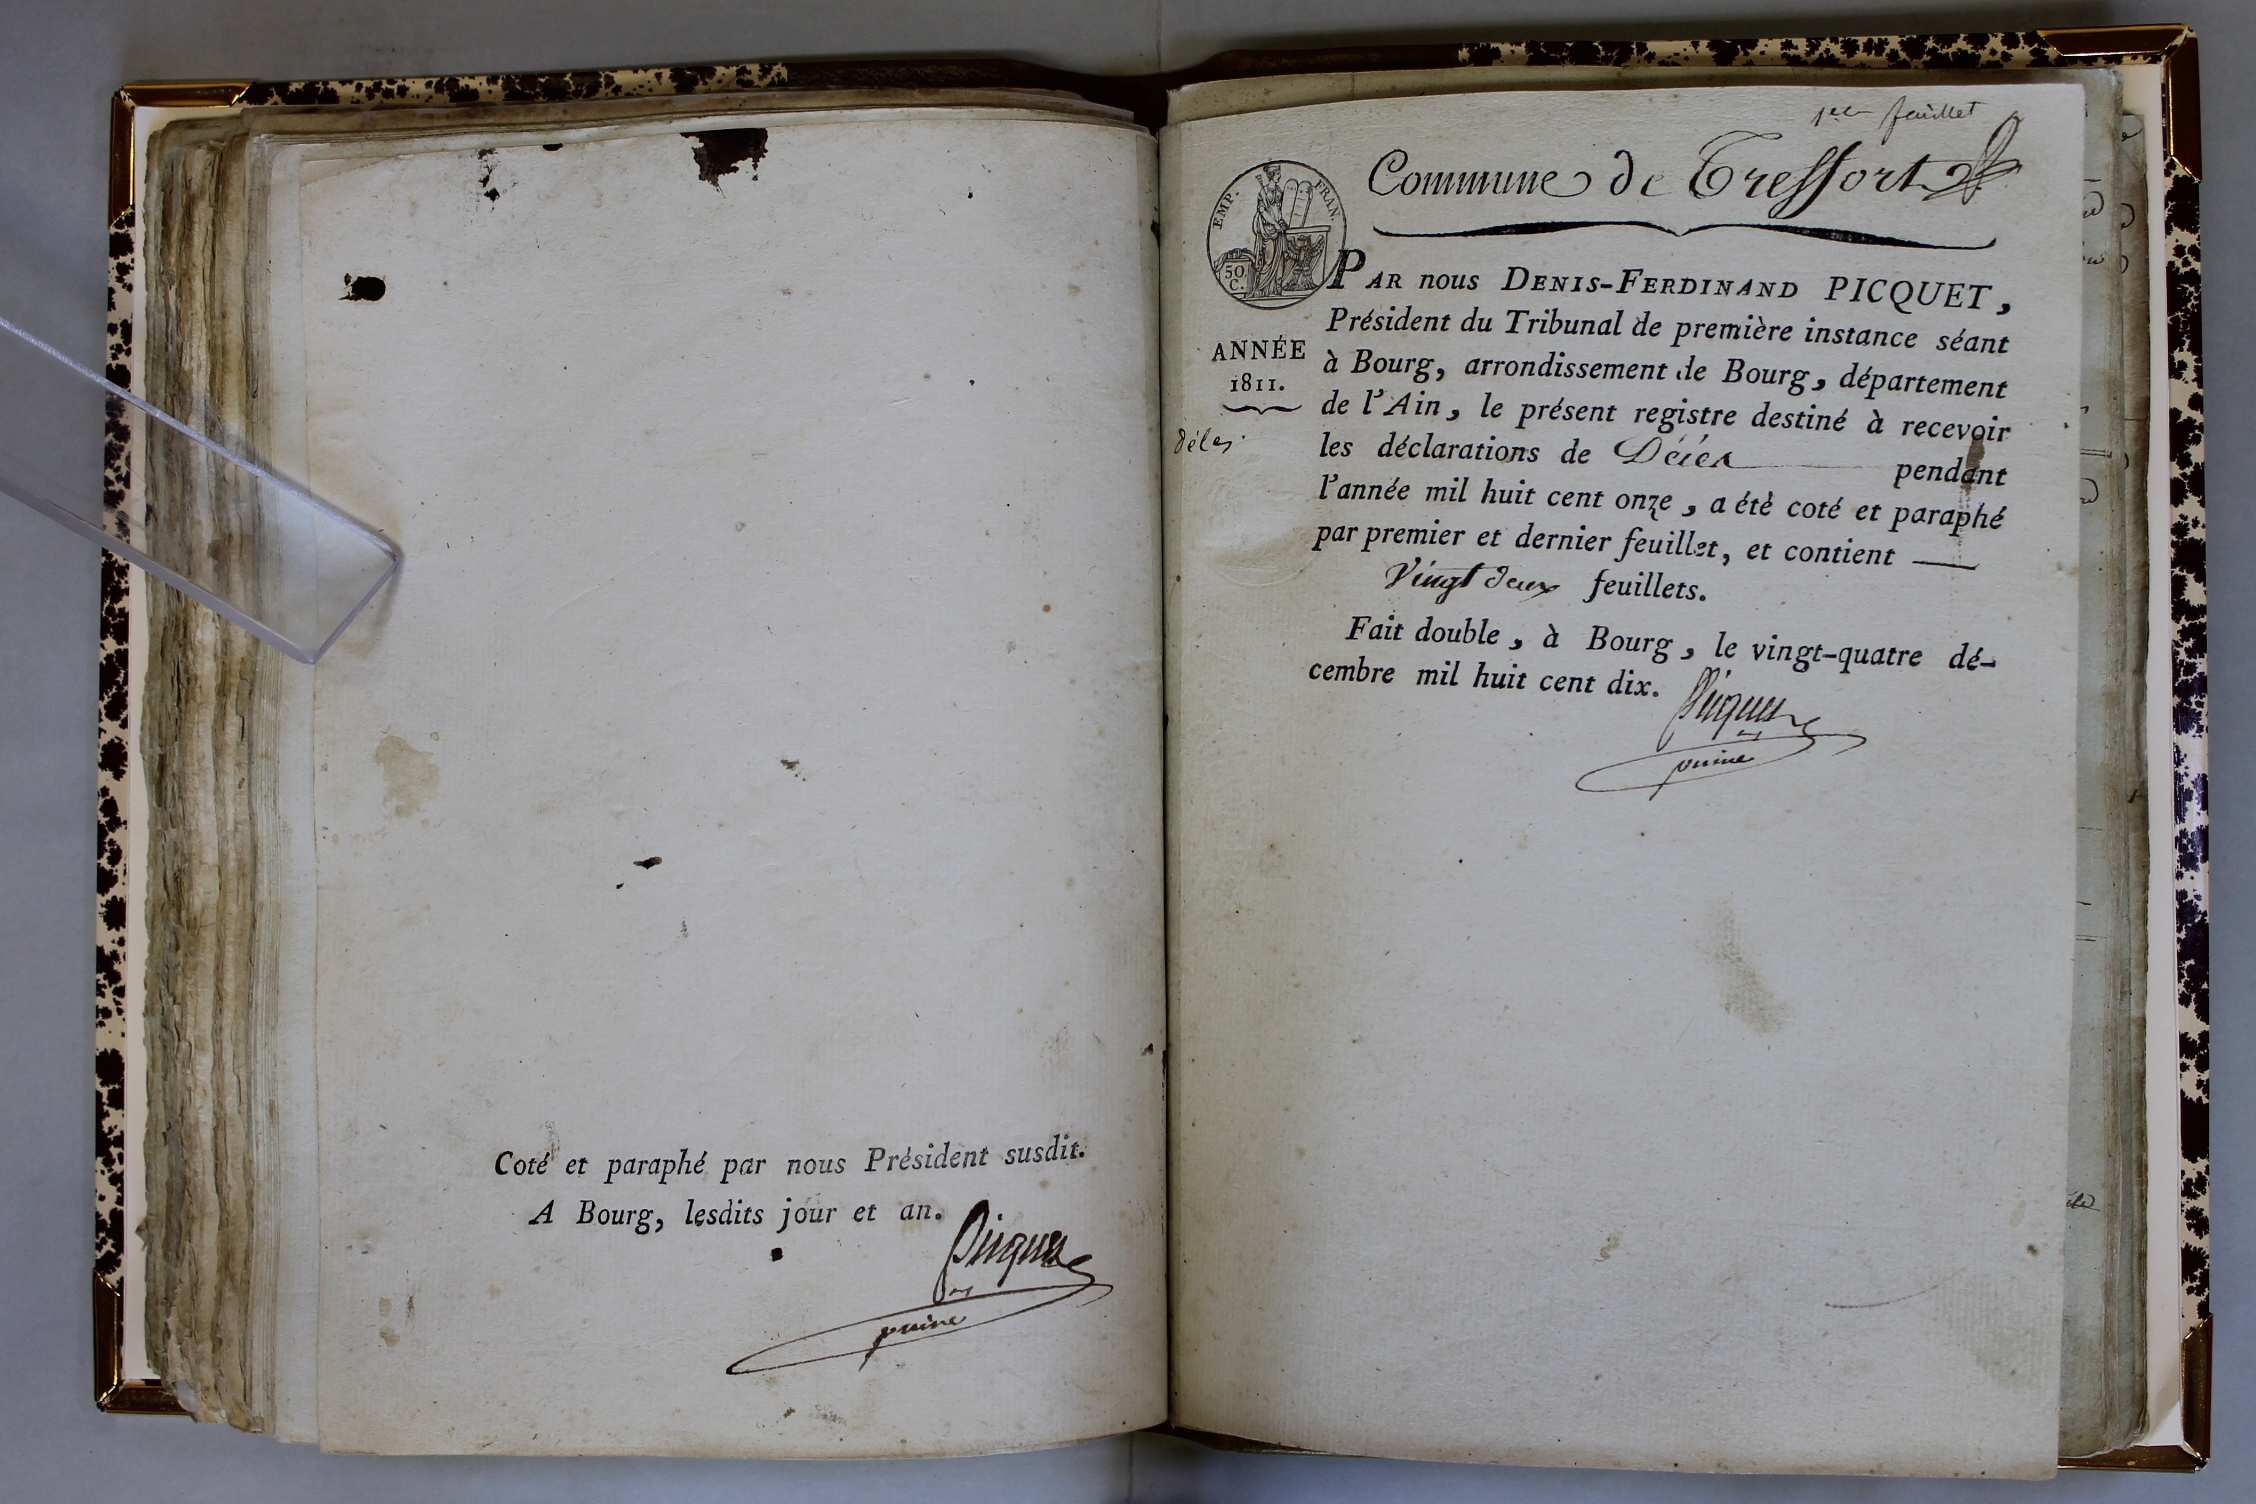 Coté et paraphé par nous Président susdit.
A Bourg, lesdits jour et an.
Picquet
puiné
1er feuillet
Commune de Treffort
EMP. FRAN.
50
C.
ANNÉE
1811.
PAR nous DENIS-FERDINAND PICQUET,
Président du Tribunal de première instance séant
à Bourg, arrondissement de Bourg, département
de l'Ain, le présent registre destiné à recevoir
les déclarations de Décés pendant
l'année mil huit cent onze, a été coté et paraphé
par premier et dernier feuillet, et contient —
Vingt deux feuillets.
Fait double, à Bourg, le vingt-quatre dé-
cembre mil huit cent dix.
Picquet
puiné